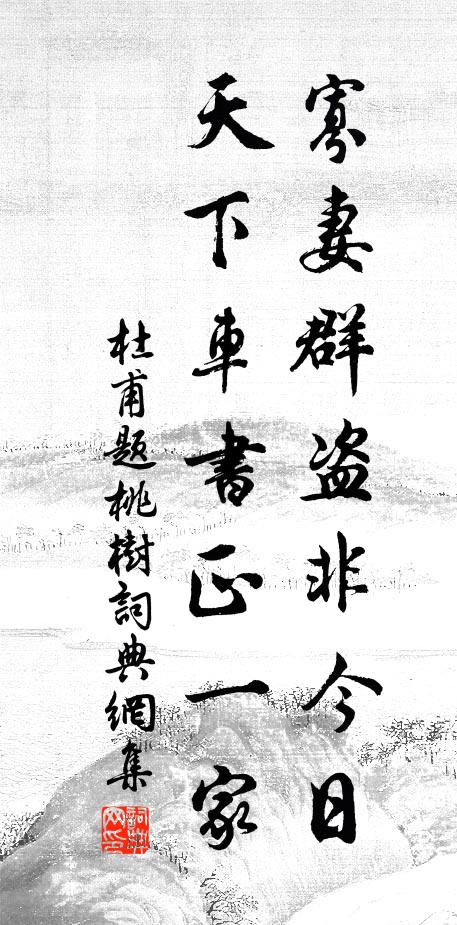 寡妻群盗非今日
天下車書正一家
杜甫題桃樹詞典網集